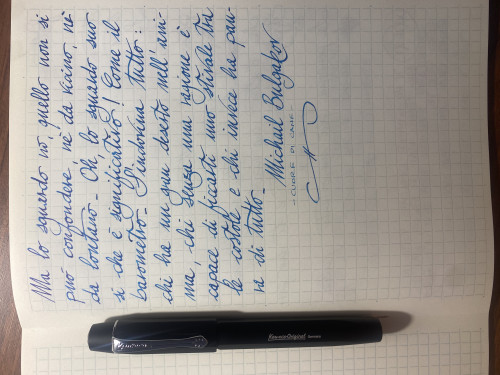 Ma lo sguardo no, quello non si
può confondere né da vicino, né
da lontano - Oh, lo sguardo suo
sì che è significativo! Come il
barometro - S'indovina tutto:
chi ha un gran deserto nell'ani-
ma, chi senza una ragione è
capace di ficcarti uno stivale tra
le costole e chi invece ha pau-
ra di tutto -
Michail Bulgakov
- CUORE DI CANE -
KawecoOriginal Germany